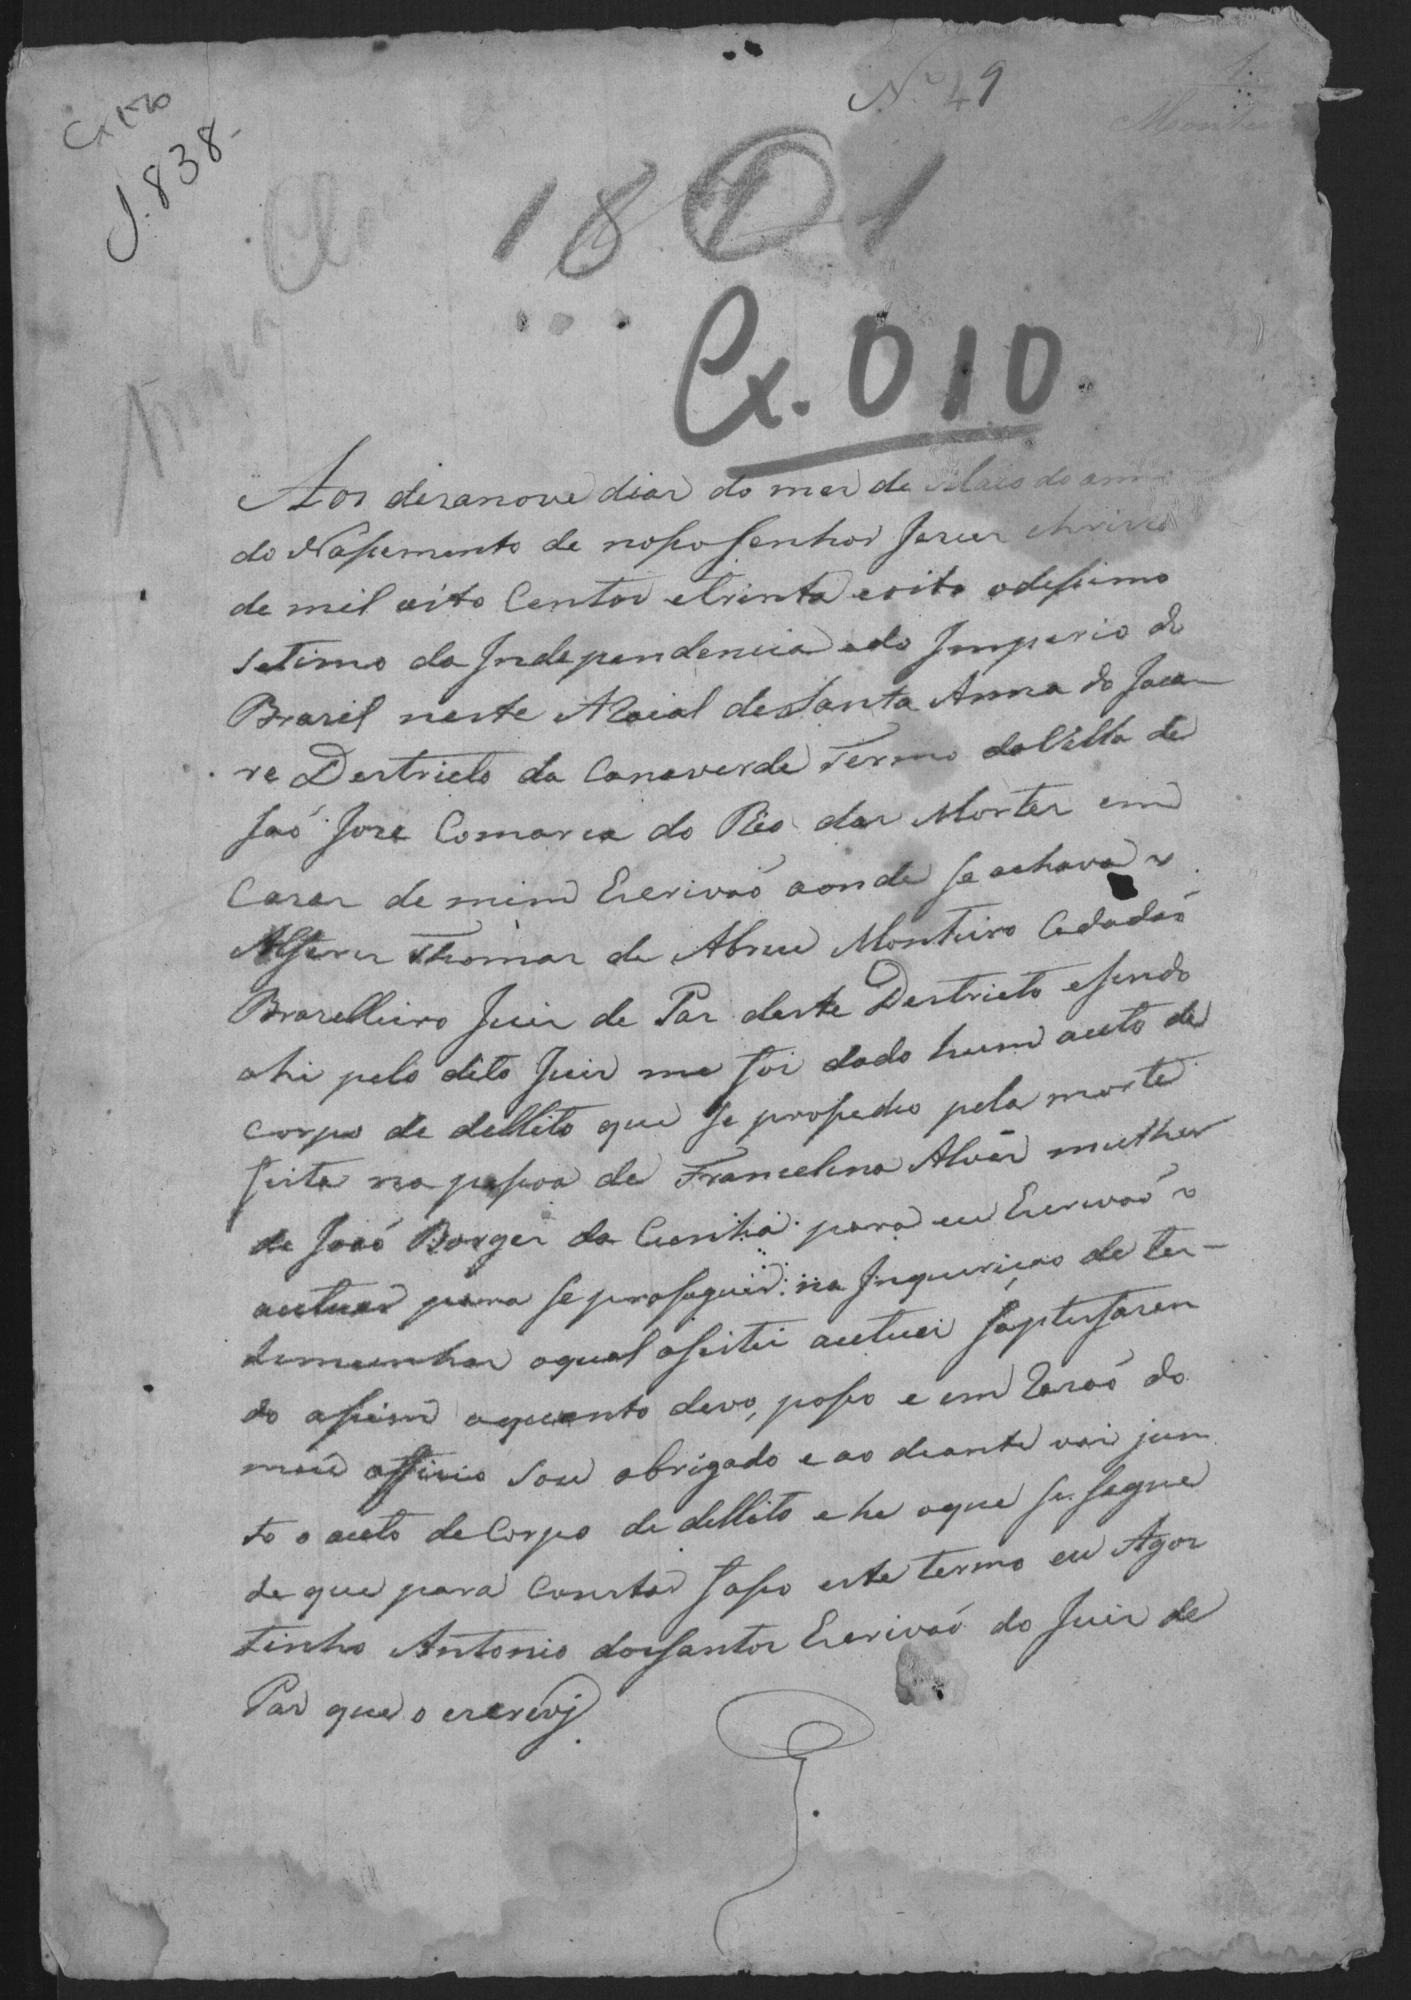 Nº 49
1.
Monteiro
Cx 170
J. 838-
18 1
Cx. 010.
Aos desanove dias do mes de Maio do anno
do Nassimento de nosso senhor Jesus christo
de mil oito Centos e trinta e oito o dessimo
setimo da Independencia e do Imperio do
Brasil neste ARaial de Santa Anna do Jaca-
re Destricto da Canaverde Termo da Villa de
Saó José Comarca do Rio das Mortes em
Casas de mim Escrivaó aonde se achava o
Alferes Thomas de Abreu Monteiro Cedadaó
Brazelleiro Juis de Pas deste Destricto e sendo
ahi pelo dito Juis me foi dado hum auto de
corpo de dellito que se prosedeo pela morte
feita na pessoa de Francelina Alves mulher
de Joaó Borges da Cunha para eu Escrivaó o
autuar para se proseguir na Inquiriçao de tes-
temunhas o qual aseitei autuei
do assim o quanto devo, posso e em Rasaó do
meu officio sou obrigado e ao deante vai jun
to o auto de Corpo de dellito e he o que se segue
de que para Constar fasso este termo eu Agos
tinho Antonio dos santos Escrivaó do Juis de
Pas que o escrevj